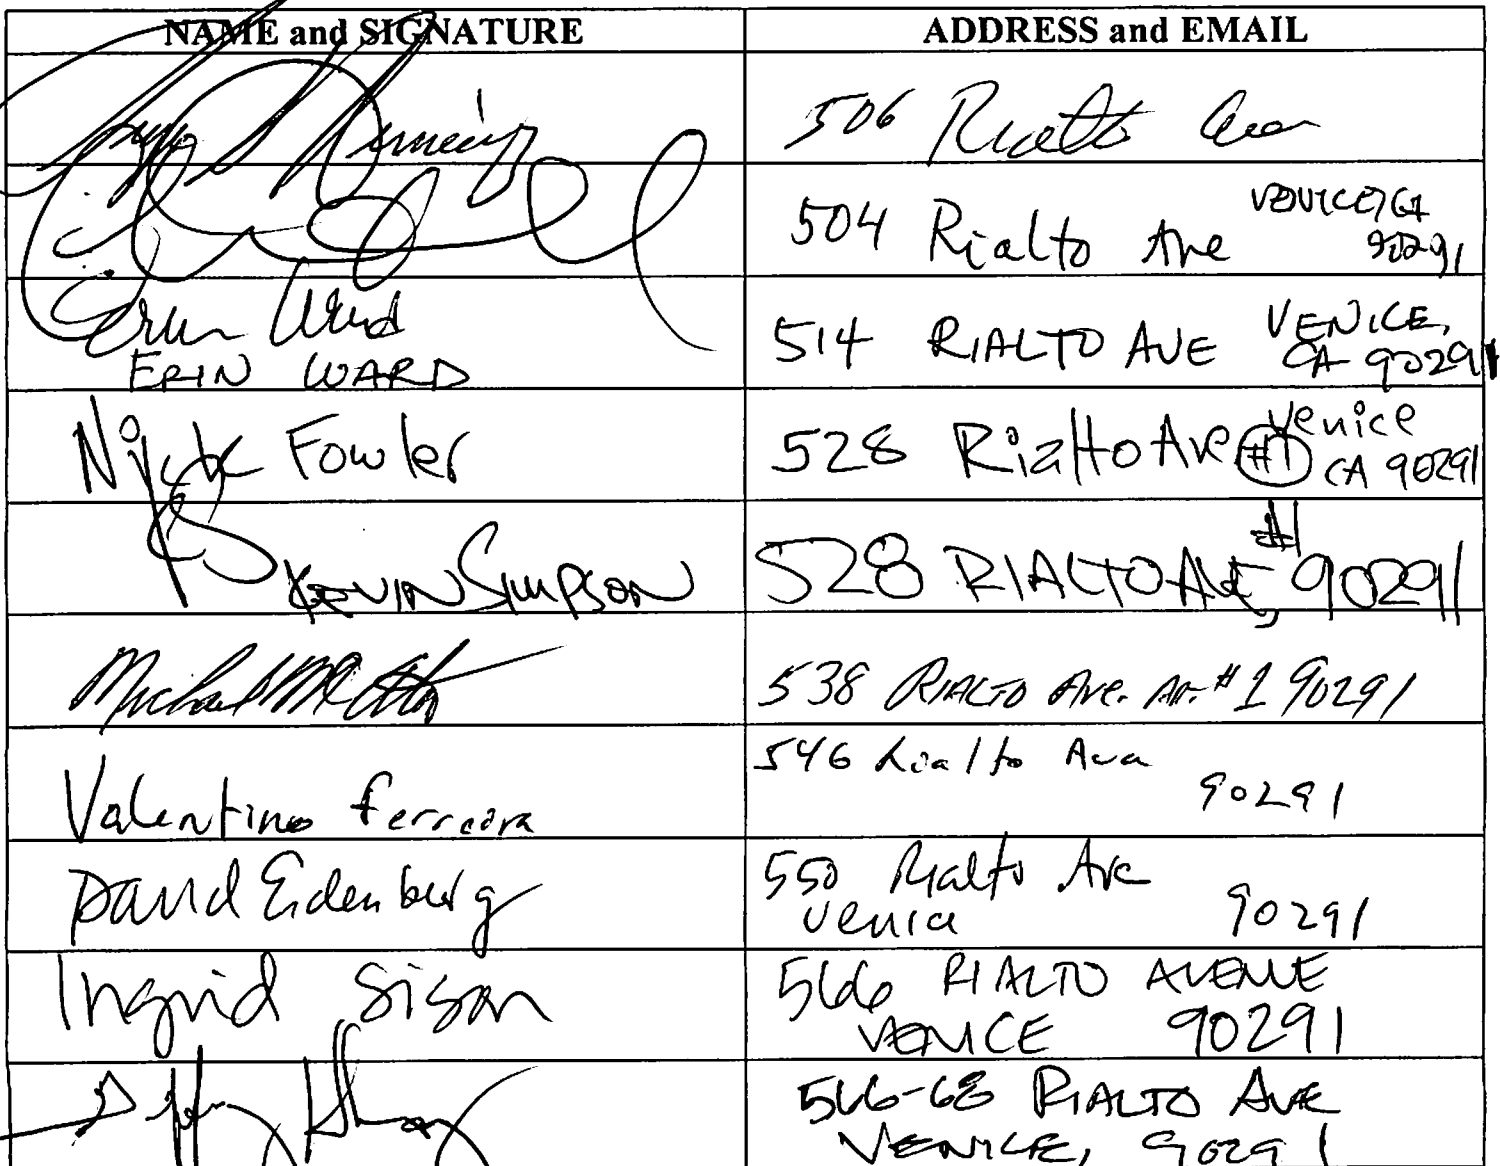 NAME and SIGNATURE
ADDRESS and EMAIL
506 Rialto Ave
504 Rialto Ave VENICE, CA
90291
ERIN WARD
514 RIALTO AVE VENICE,
CA 90291
Nick Fowler
528 Rialto Ave #1 Venice
CA 90291
KEVIN SIMPSON
528 RIALTO AVE, #1 90291
Michael
538 RIALTO AVE. AP. #1 90291
Valentino Ferreira
546 Rialto Ave
90291
David Eidenburg
550 Rialto Ave
Venice 90291
Ingrid Sison
566 RIALTO AVENUE
VENICE 90291
566-68 RIALTO AVE
VENICE, 90291